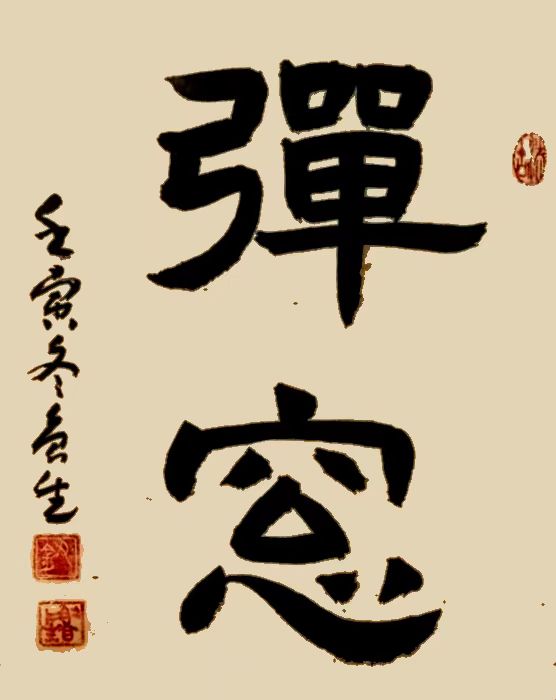 彈窓
壬寅冬生